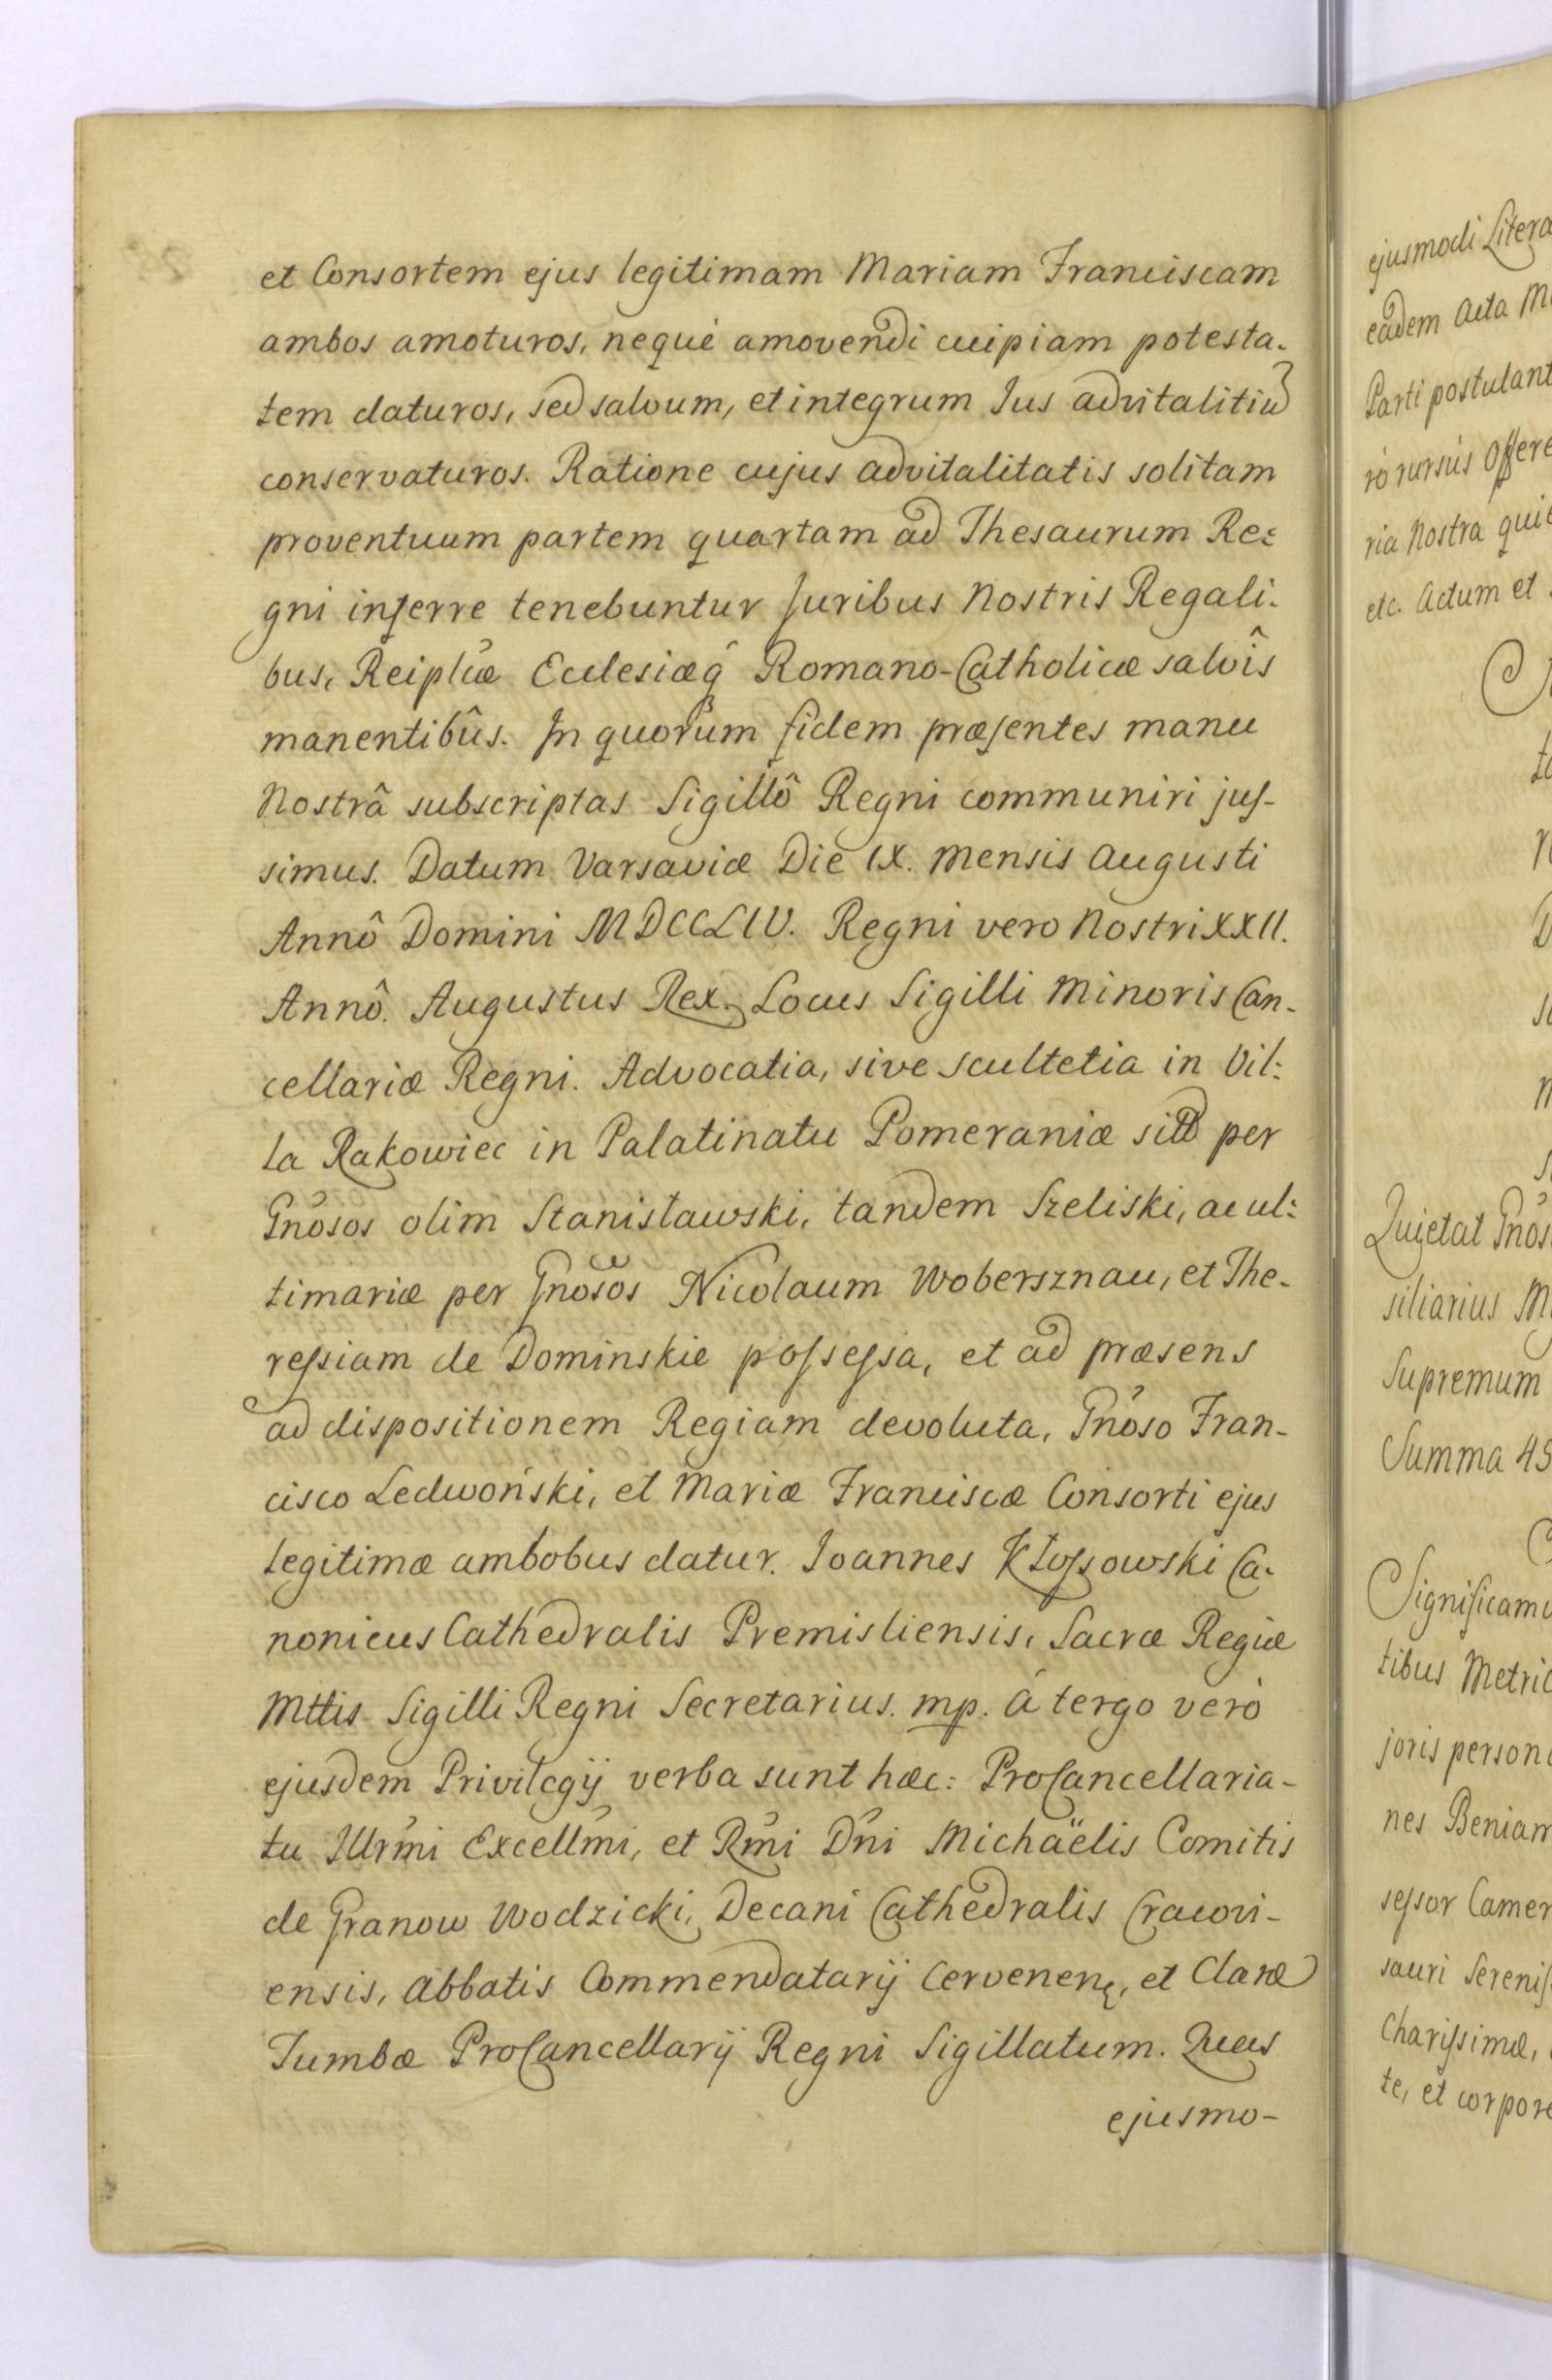 et Consortem ejus legitimam Mariam Franciscam
ambos amoturos, nequè amovendi cuipiam potesta-
tem daturos, sed salvum, et integrum Jus advitalitiũ
conservaturos. Ratione cujus advitalitatis solitam
proventuum partem quartam ad Thesaurum Re=
gni inferre tenebuntur Juribus Nostris Regali-
bus, Reiplcæ Ecclesiæq̃ Romano-Catholicæ salvîs
manentibûs. In quorum fidem præsentes manu
Nostrâ subscriptas Sigillô Regni communiri jus-
simus. Datum Varsaviæ Die IX. Mensis Augusti
Annô Domini MDCCLIV. Regni vero Nostri XXII.
Annô. Augustus Rex. Locus Sigilli Minoris Can-
cellariæ Regni. Advocatia, sive Scultetia in Vil=
la Rakowiec in Palatinatu Pomeraniæ sita per
Gnosos olim Stanisławski, tandem Szeliski, ac ul=
timariæ per Gnosos Nicolaum Wobersznau, et The-
ressiam de Dominskie possessa, et ad præsens
ad dispositionem Regiam devoluta, Gnoso Fran-
cisco Ledwoński, et Mariæ Franciscæ Consorti ejus
legitimæ ambobus datur. Joannes Kłossowski Ca-
nonicus Cathedralis Premisliensis, Sacræ Regiæ
Mttis Sigilli Regni Secretarius. mp. à tergo verò
ejusdem Privilegij verba sunt hæc: ProCancellaria-
tu Illrmi Excellmi, et Rmi Dni Michaëlis Comitis
de Granow Wodzicki, Decani Cathedralis Cracovi-
ensis, Abbatis Commendatarij Cervenen, et Claræ
Tumbæ ProCancellarij Regni Sigillatum. Quas
ejusmo-
ejusmodi Litera
eadem Acta M
Parti postulant
rò rursùs Offere
ria Nostra qui
etc. Actum et
Quietat Gnos
siliarius M
Supremum
Summa 45
Significamu
tibus Metric
joris person
nes Beniam
sessor Camer
sauri Serenis
Charissimæ,
te, et corpore